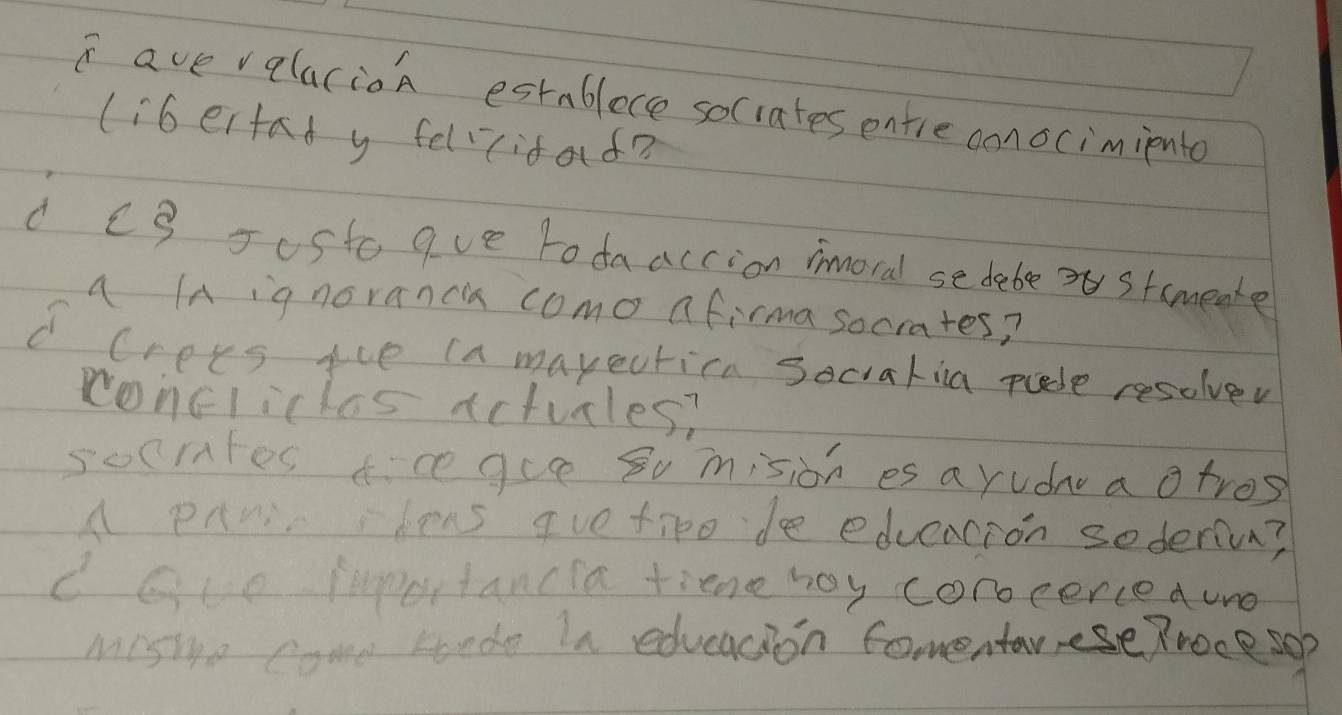 ¿ que relación establece socrates entre conocimiento
libertad y felicidad?
¿ es Justo que toda accion inmoral se debe
a la ignorancia como afirma socrates?
¿ Crees que la mayeutica Socratica puede resolver
conflictos actuales?
socrates dice que su misión es ayudar a otros
A parir ideas que tipo de educación
¿ Que importancia tiene hoy conocerce a uno
mismo como puede la educación fomentar ese Proceso?